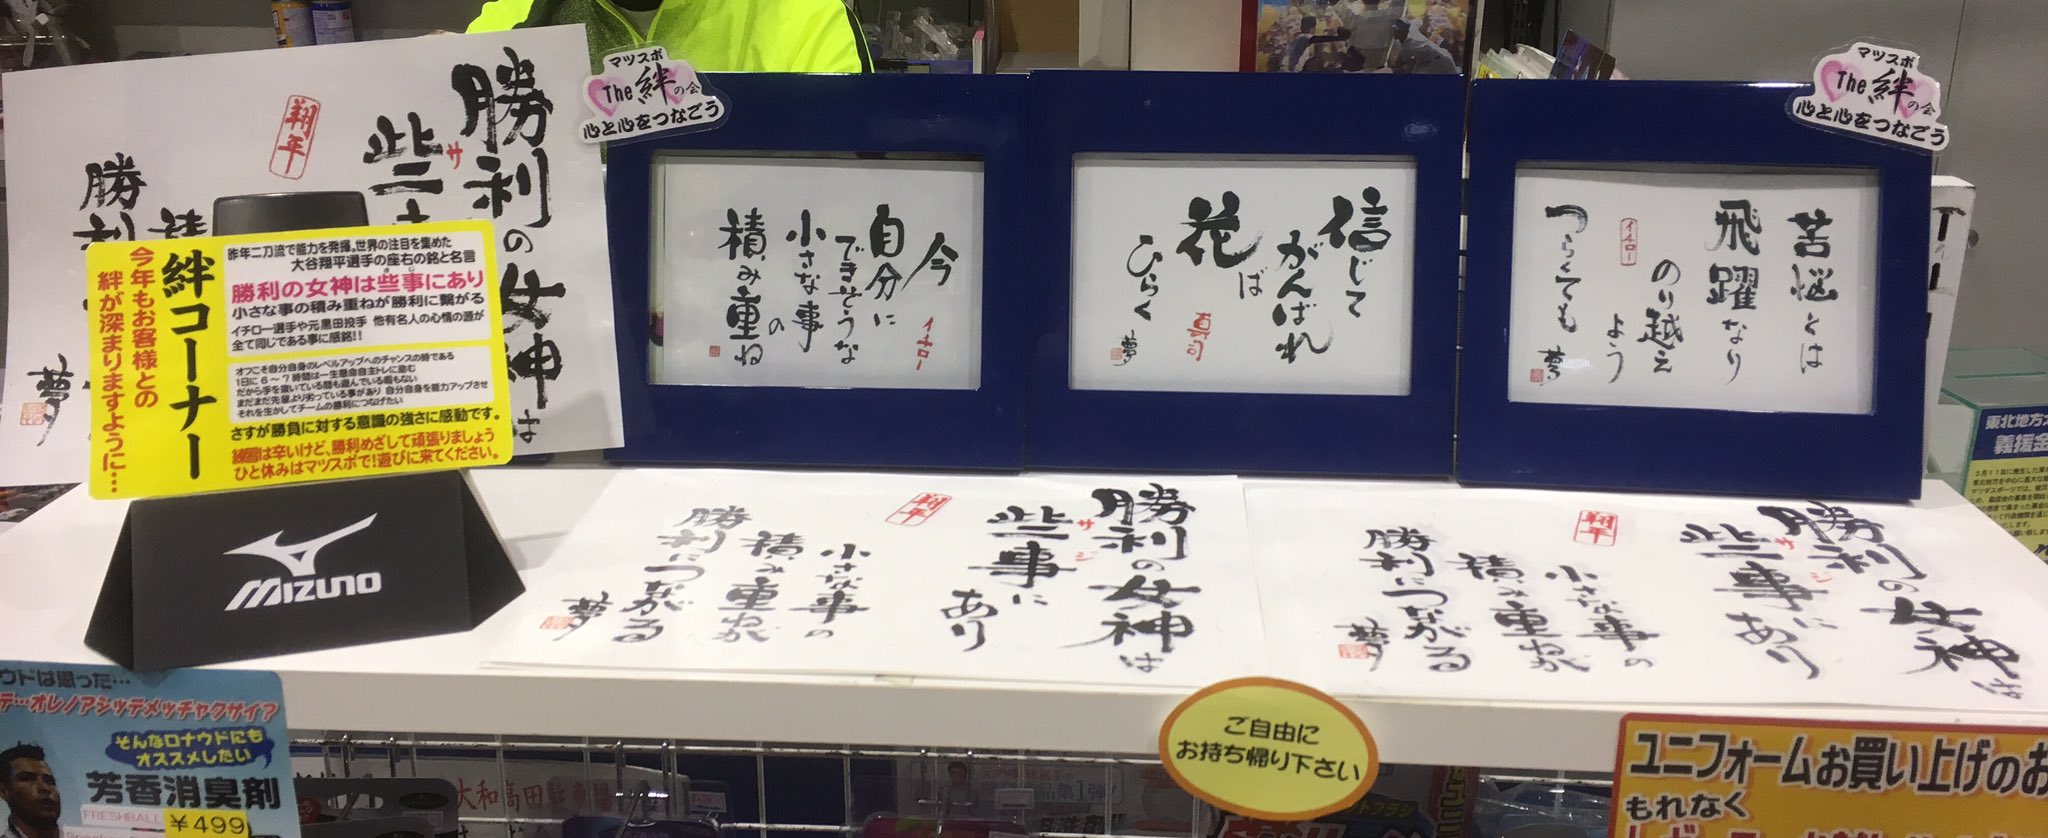 勝利の女神は
サ
些
翔年
積
勝利
夢
絆コーナー
今年もお客様との
絆が深まりますように…
昨年二刀流で能力を発揮。世界の注目を集めた
大谷翔平選手の座右の銘と名言
勝利の女神は些事にあり
小さな事の積み重ねが勝利に繋がる
イチロー選手や元黒田投手 他有名人の心情の源が
全て同じである事に感銘!!
オフこそ自分自身のレベルアップへのチャンスの時である
1日に6~7時間は一生懸命自主トレに励む
だから手を抜いている間も遊んでいる暇もない
まだまだ先輩より劣っている事があり 自分自身を能力アップさせ
それを生かしてチームの勝利につなげたい
さすが勝負に対する意識の強さに感動です。
練習は辛いけど、勝利めざして頑張りましょう
ひと休みはマツスポで!遊びに来てください。
MIZUNO
マツスポ
The絆の会
心と心をつなごう
今
自分に
できそうな
小さな事
の
積み重ね
イチロー
信じて
がんばれ
ば
花
ひらく
真司
夢
マツスポ
The絆の会
心と心をつなごう
苦悩とは
飛躍なり
のり越え
よう
イチロー
つらくても
夢
勝利の女神は
サジ
些事に
あり
翔平
小さな事の
積み重ねが
勝利につながる
夢
勝利の女神は
サジ
些事にあり
翔平
小さな事の
積み重ねが
勝利につながる
夢
ご自由に
お持ち帰り下さい
ウドは思った…
デ…オレノアシッテメッチャクサイ?
そんなロナウドにも
オススメしたい
芳香消臭剤
FRESHBALL
¥499
大和高田
ユニフォームお買い上げのお
もれなく
東北地方
義援金
3月11日に発生した